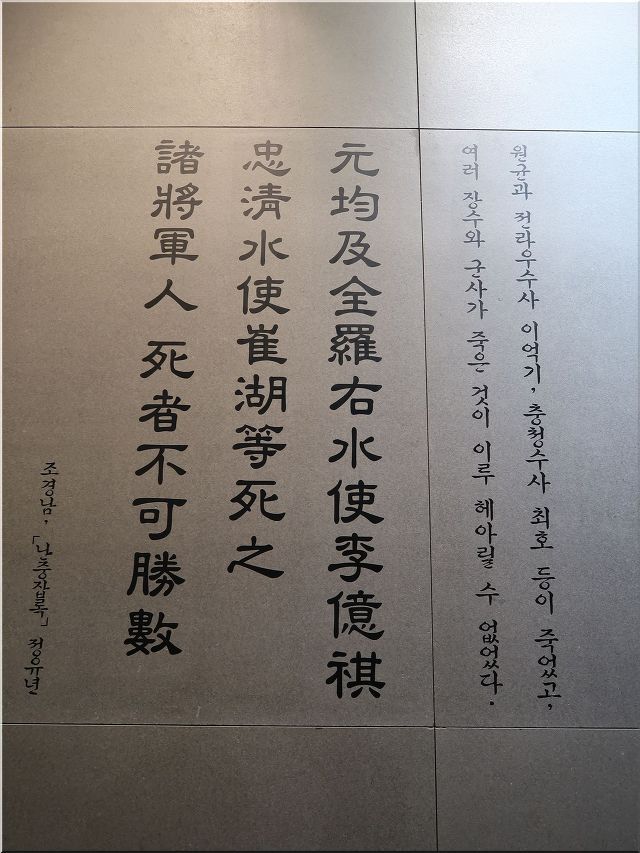 원균과 전라우수사 이억기, 충청수사 최호 등이 죽었고,
여러 장수와 군사가 죽은 것이 이루 헤아릴 수 없었다.
元均及全羅右水使李億祺
忠淸水使崔湖等死之
諸將軍人 死者不可勝數
조경남, 「난중잡록」 정유년